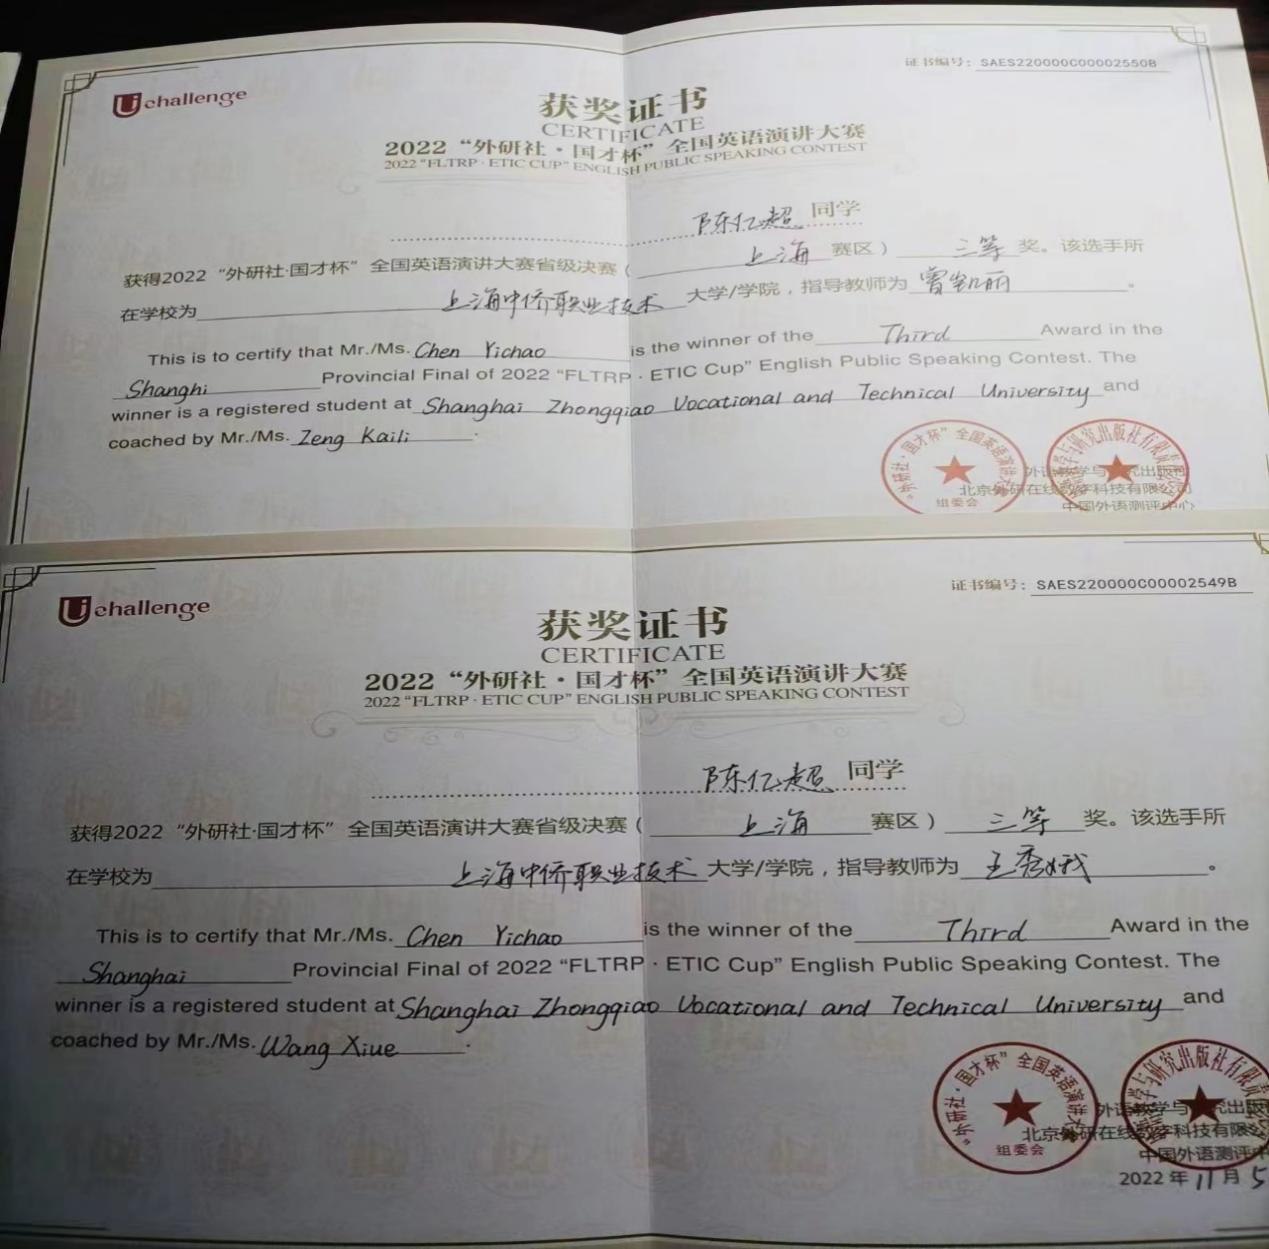 Uchallenge
证书编号：SAES220000C00002550B
获奖证书
CERTIFICATE
2022“外研社·国才杯”全国英语演讲大赛
2022 “FLTRP · ETIC CUP” ENGLISH PUBLIC SPEAKING CONTEST
陈亿超 同学
获得2022“外研社·国才杯”全国英语演讲大赛省级决赛（ 上海 赛区） 三等 奖。该选手所
在学校为 上海中侨职业技术 大学/学院，指导教师为 曾凯丽 。
This is to certify that Mr./Ms. Chen Yichao is the winner of the Third Award in the
Shanghi Provincial Final of 2022 “FLTRP · ETIC Cup” English Public Speaking Contest. The
winner is a registered student at Shanghai Zhongqiao Vocational and Technical University and
coached by Mr./Ms. Zeng Kaili .
“外研社·国才杯”全国英语演讲大
组委会
学与研究出版社有限责
外语教学与研究出版社
北京外研在线数字科技有限公司
中国外语测评中心
Uchallenge
证书编号：SAES220000C00002549B
获奖证书
CERTIFICATE
2022“外研社·国才杯”全国英语演讲大赛
2022 “FLTRP · ETIC CUP” ENGLISH PUBLIC SPEAKING CONTEST
陈亿超 同学
获得2022“外研社·国才杯”全国英语演讲大赛省级决赛（ 上海 赛区） 三等 奖。该选手所
在学校为 上海中侨职业技术 大学/学院，指导教师为 王秀娥 。
This is to certify that Mr./Ms. Chen Yichao is the winner of the Third Award in the
Shanghai Provincial Final of 2022 “FLTRP · ETIC Cup” English Public Speaking Contest. The
winner is a registered student at Shanghai Zhongqiao Vocational and Technical University and
coached by Mr./Ms. Wang Xiue .
“外研社·国才杯”全国英语演讲大
组委会
学与研究出版社有限责
外语教学与研究出版
北京外研在线数字科技有限公
中国外语测评中
2022 年 11 月 5